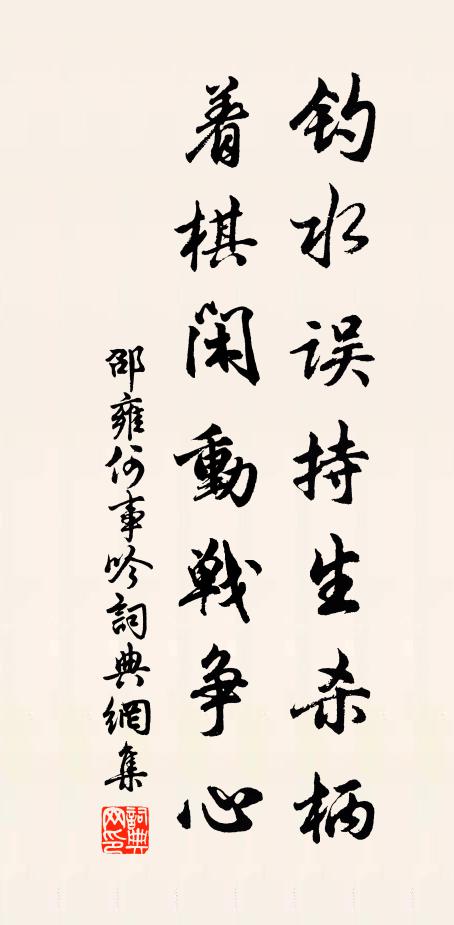 钓水误持生杀柄
着棋闲動戰争心
邵雍何事吟詞典網集
詞典網印